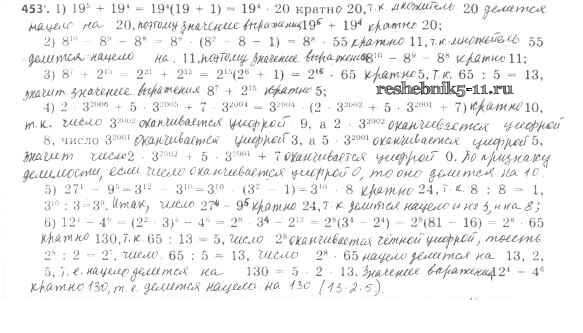 453'. 1) 19⁵ + 19⁴ = 19⁴(19 + 1) = 19⁴ · 20 кратно 20, т.к. множитель 20 делится
нацело на 20, поэтому значение выражения 19⁵ + 19⁴ кратно 20;
2) 8¹⁰ − 8⁹ − 8⁸ = 8⁸ · (8² − 8 − 1) = 8⁸ · 55 кратно 11, т.к. множитель 55
делится нацело на 11, поэтому значение выражения 8¹⁰ − 8⁹ − 8⁸ кратно 11;
3) 8⁷ + 2¹⁵ = 2²¹ + 2¹⁵ = 2¹⁵(2⁶ + 1) = 2¹⁵ · 65 кратно 5, т.к. 65 : 5 = 13,
значит значение выражения 8⁷ + 2¹⁵ кратно 5;
reshebnik5-11.ru
4) 2 · 3²⁰⁰⁶ + 5 · 3²⁰⁰⁵ + 7 · 3²⁰⁰⁴ = 3²⁰⁰⁴ · (2 · 3²⁰⁰² + 5 · 3²⁰⁰¹ + 7) кратно 10,
т.к. число 3²⁰⁰² оканчивается цифрой 9, а 2 · 3²⁰⁰² оканчивается цифрой
8, число 3²⁰⁰¹ оканчивается цифрой 3, а 5 · 3²⁰⁰¹ оканчивается цифрой 5,
значит число 2 · 3²⁰⁰² + 5 · 3²⁰⁰¹ + 7 оканчивается цифрой 0. По признаку
делимости, если число оканчивается цифрой 0, то оно делится на 10.
5) 27⁴ − 9⁵ = 3¹² − 3¹⁰ = 3¹⁰ · (3² − 1) = 3¹⁰ · 8 кратно 24, т.к. 8 : 8 = 1,
3¹⁰ : 3 = 3⁹. Итак, число 27⁴ − 9⁵ кратно 24, т.к. делится нацело и на 3, и на 8;
6) 12⁴ − 4⁶ = (2² · 3)⁴ − 4⁶ = 2⁸ · 3⁴ − 2¹² = 2⁸(3⁴ − 2⁴) = 2⁸(81 − 16) = 2⁸ · 65
кратно 130, т.к. 65 : 13 = 5, число 2⁸ оканчивается чётной цифрой, то есть
2⁸ : 2 = 2⁷, число 65 : 5 = 13, число 2⁸ · 65 нацело делится на 13, 2,
5, т.е. нацело делится на 130 = 5 · 2 · 13. Значение выражения 12⁴ − 4⁶
кратно 130, т.е. делится нацело на 130 (13·2·5).